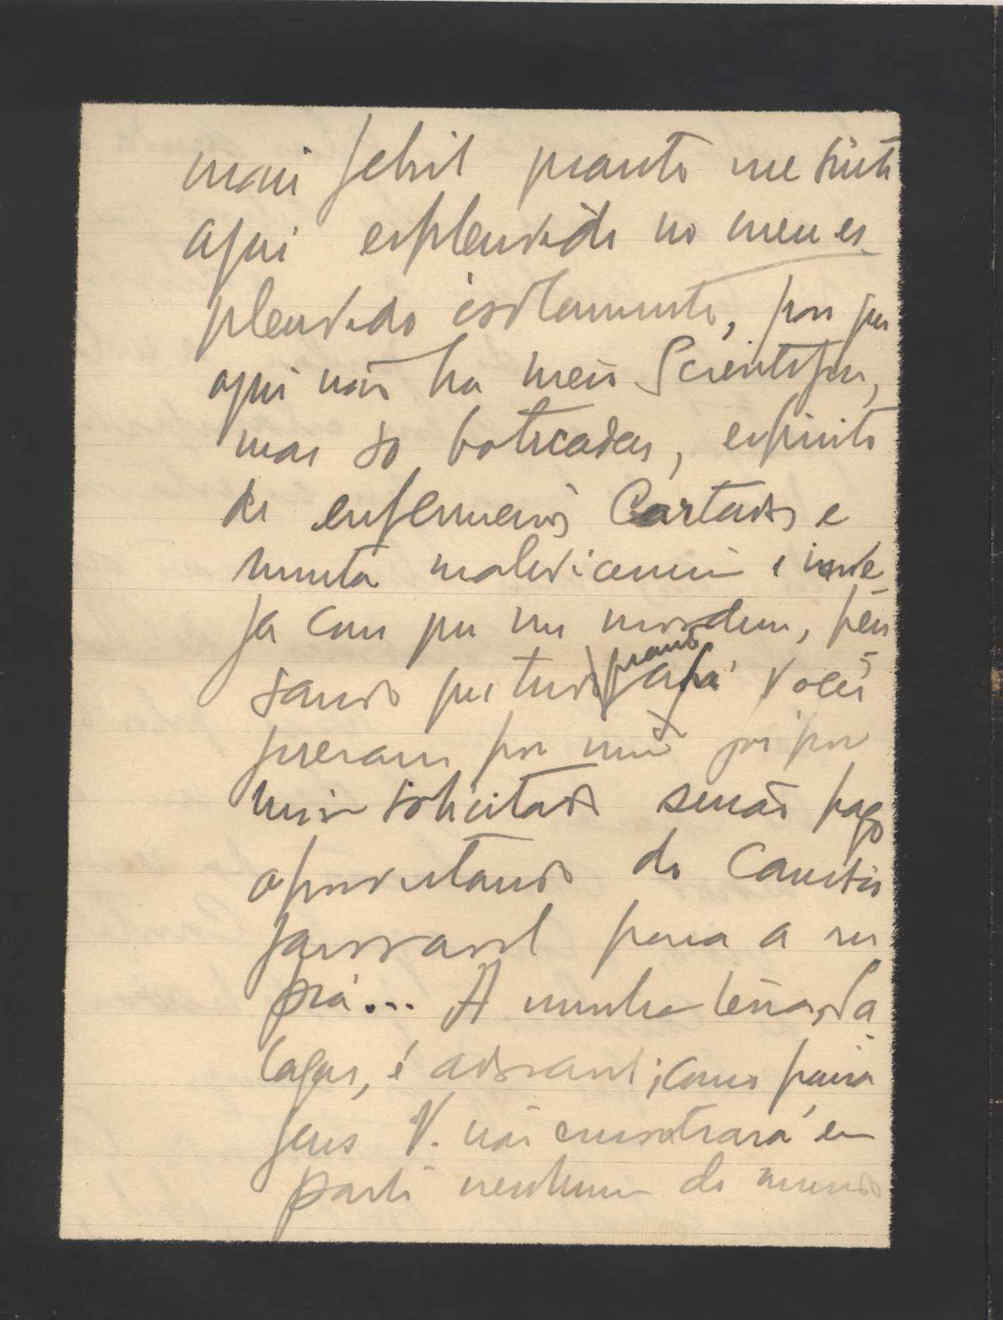 mais febril quanto me sinto
aqui esplendido no meu es-
plendido isolamento, por que
aqui não ha meio Scientifico,
mas so boticadas, espirito
de enfermeiros Cartados e
muita maledicencia e inve
ja com que me mordem, pen
sando que tudo quanto ahi Vocês
fizeram por mim foi por
mim solicitado senão pago
aproveitando do
para a
A minha
Lagos, é adoravel; como paiza
gens V. não encontrará em
parte nenhuma do mundo